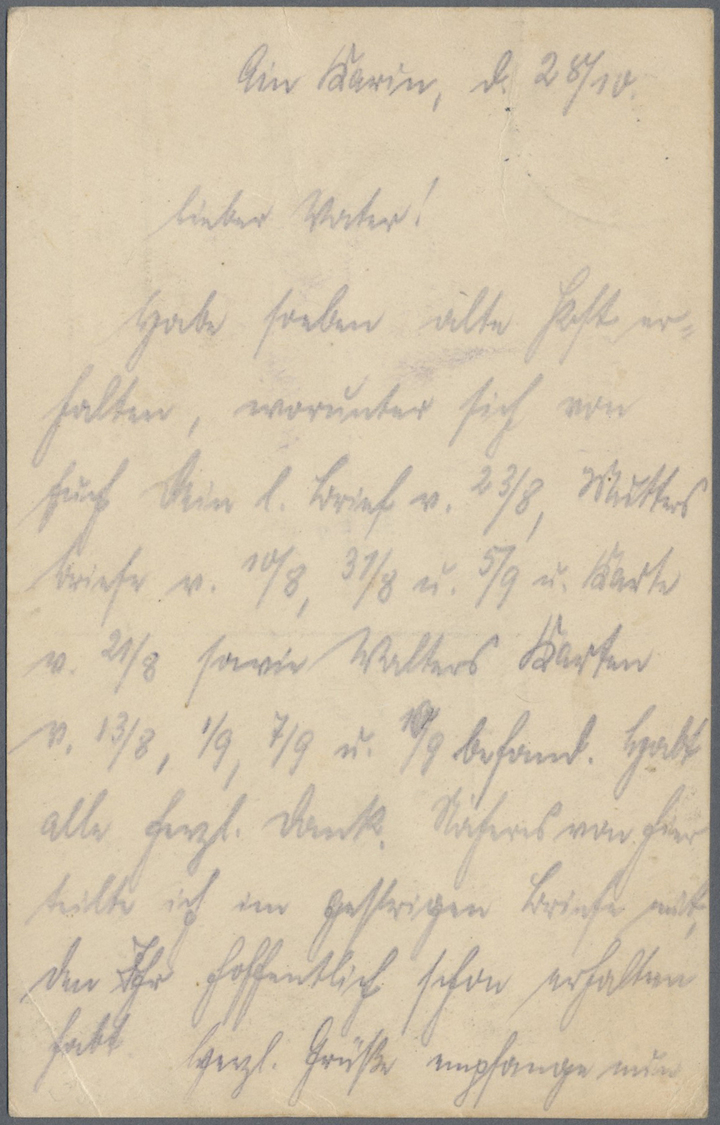 Ain Karin, d. 28/10.
Lieber Vater!
Habe soeben alte Post er-
halten, worunter sich von
Euch Dein l. Brief v. 23/8, Mutters
Briefe v. 10/8, 31/8 u. 5/9 u. Karte
v. 21/8 sowie Walters Karten
v. 13/8, 1/9, 7/9 u. /9 befand. Habt
alle herzl. Dank. Näheres von hier
teilte ich im gestrigen Briefe mit,
den Ihr hoffentlich schon erhalten
habt Herzl. Grüße empfange nun